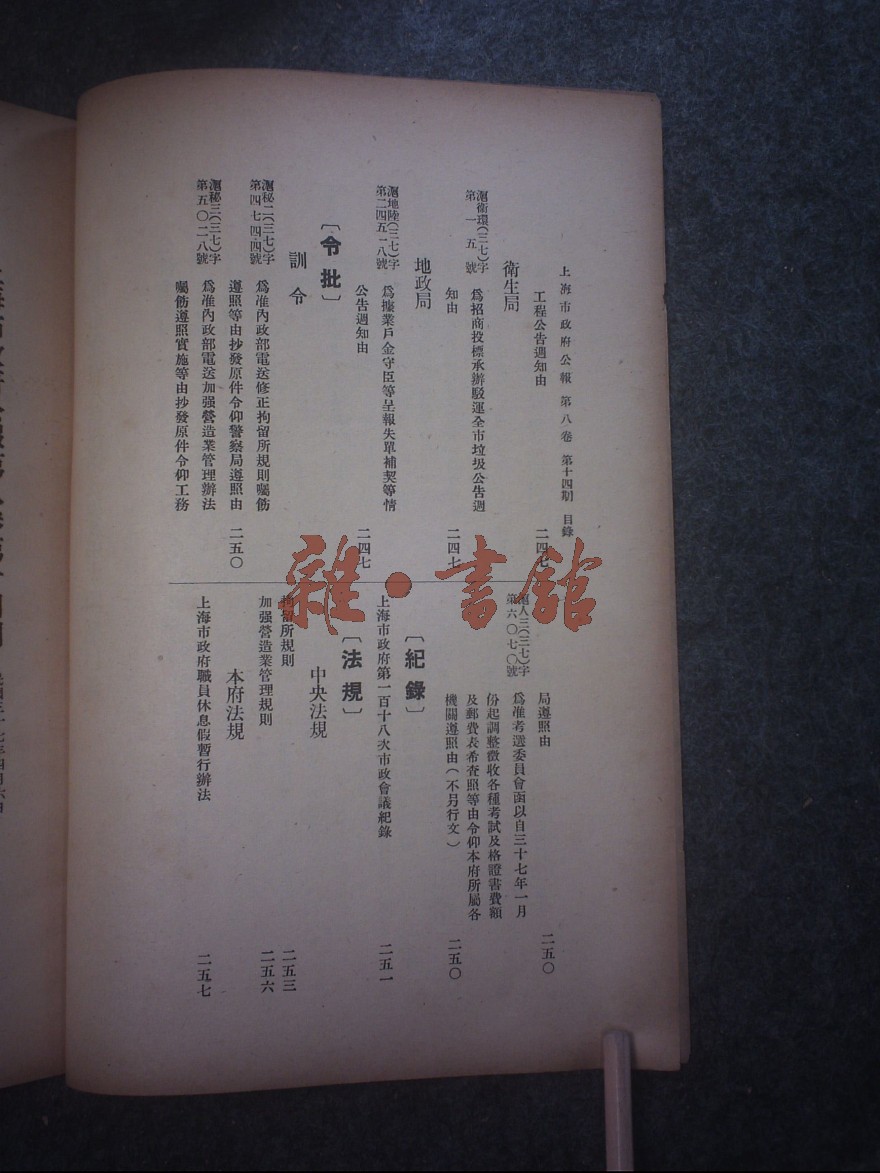 上海市政府公報 第八卷 第十四期 目錄
工程公告週知由 二四七
衛生局
滬衛環(三七)字
第一五號
爲招商投標承辦駁運全市垃圾公告週
知由 二四七
地政局
滬地陸(三七)字
第二四五一八號
爲據業戶金守臣等呈報失單補契等情
公告週知由 二四七
〔令批〕
訓令
滬秘二(三七)字
第四七四四號
爲准內政部電送修正拘留所規則囑飭
遵照等由抄發原件令仰警察局遵照由 二五〇
滬秘三(三七)字
第五〇二八號
爲准內政部電送加强營造業管理辦法
囑飭遵照實施等由抄發原件令仰工務
局遵照由 二五〇
滬人三(三七)字
第六〇七〇號
爲准考選委員會函以自三十七年一月
份起調整徵收各種考試及格證書費額
及郵費表希查照等由令仰本府所屬各
機關遵照由(不另行文) 二五〇
〔紀錄〕
上海市政府第一百十八次市政會議紀錄 二五一
〔法規〕
中央法規
拘留所規則 二五三
加强營造業管理規則 二五六
本府法規
上海市政府職員休息假暫行辦法 二五七
雜·書館